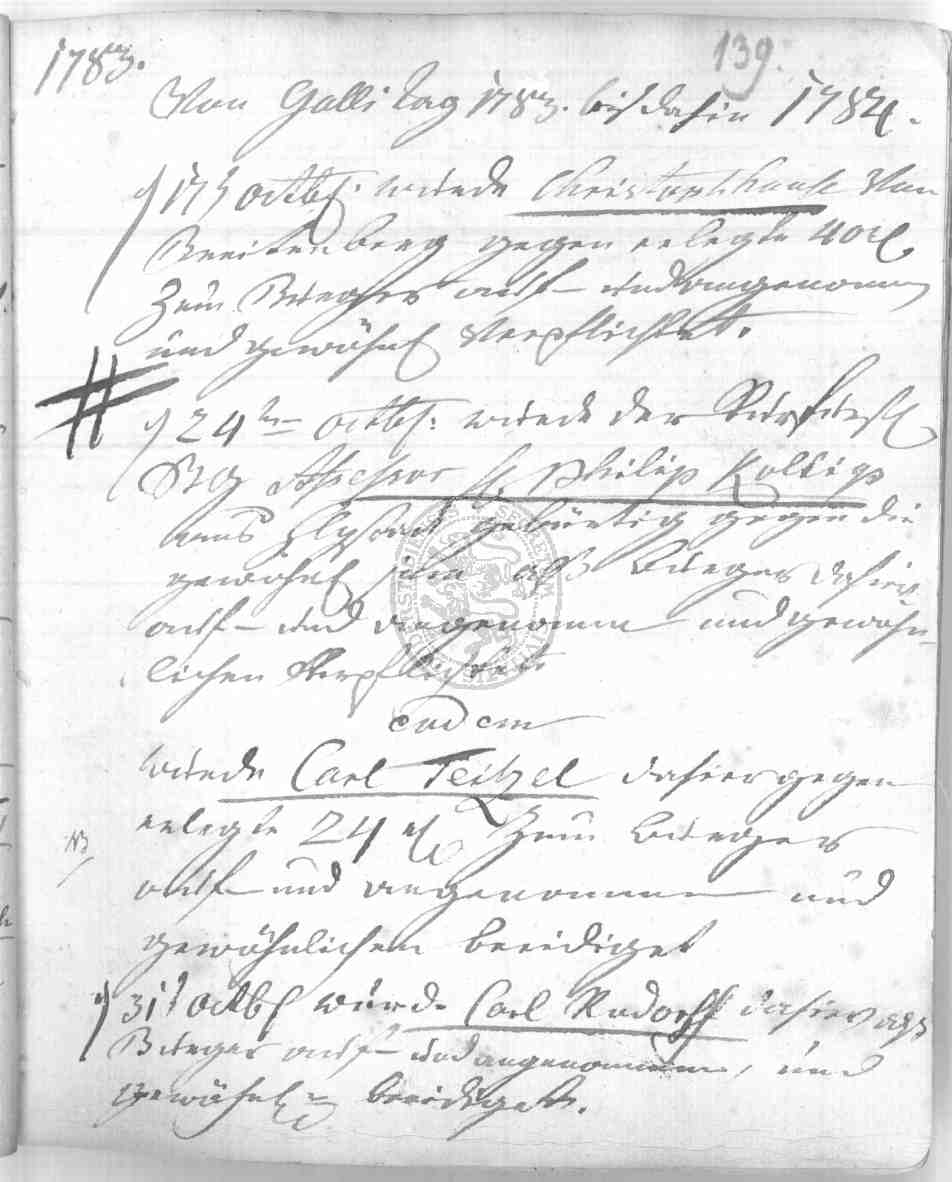 1783.
139.
Von Galli tag 1783. bis dahin 1784.
17t octbr: wurde Christoph hauk Von
Breitenberg gegen erlegte 40
Zum Burger auf- und angenomen
und gewöhnl Verpflichtet.
24ten octbr: wurde der
Assessor H. Philip Kolligs
aus gebürtig gegen die
gewohnl als burger dahier
auf- und angenommen und gewöhn-
lichen Verpflichtet
eodem
wurde Carl Teitzel dahier gegen
erlegte 24 Zum burger
auf- und angenommen und
gewöhnlichen beeidiget
NB
31t octbr würde Carl Rudorff dahier als
Burger auf- und angenommen, und
gewöhnl beeidiget.